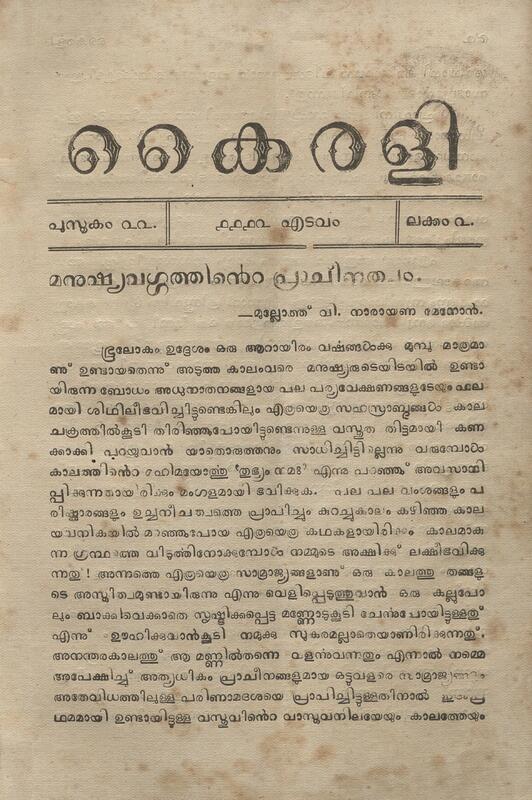 കൈരളി
പുസ്തകം ൨൨.
൧൧൧൨ എടവം
ലക്കം ൨.
മനുഷ്യവൎഗ്ഗത്തിൻെറ പ്രാചീനത്വം.
—മുല്ലോത്ത് വി. നാരായണ മേനോൻ.
ഭൂലോകം ഉദ്ദേശം ഒരു ആറായിരം വൎഷങ്ങൾക്കു മുമ്പു മാത്രമാ
ണ് ഉണ്ടായതെന്നു് അടുത്ത കാലംവരെ മനുഷ്യരുടെയിടയിൽ ഉണ്ടാ
യിരുന്ന ബോധം അധുനാതനങ്ങളായ പല പൎയ്യവേക്ഷണങ്ങളുടേയും ഫല
മായി ശിഥിലീഭവിച്ചിട്ടുണ്ടെങ്കിലും എത്രയെത്ര സഹസ്രാബ്ദങ്ങൾ കാല
ചക്രത്തിൽകൂടി തിരിഞ്ഞുപോയിട്ടുണ്ടെന്നുള്ള വസ്തുത തിട്ടമായി കണ
ക്കാക്കി പറയുവാൻ യാതൊരുത്തനും സാധിച്ചിട്ടില്ലെന്നു വരുമ്പോൾ
കാലത്തിൻെറ മഹിമയോത്തു 'തുഭ്യം നമഃ' എന്നു പറഞ്ഞു് അവസാനി
പ്പിക്കുന്നതായിരിക്കും മംഗളമായി ഭവിക്കുക. പല പല വംശങ്ങളും പ
രിഷ്കാരങ്ങളും ഉച്ചനീചത്വത്തെ പ്രാപിച്ചും കുറച്ചുകാലം കഴിഞ്ഞ കാല
യവനികയിൽ മറഞ്ഞുപോയ എത്രയെത്ര കഥകളായിരിക്കും കാലമാകു
ന്ന ഗ്രന്ഥത്തെ വിടുത്തിനോക്കുമ്പോൾ നമ്മുടെ അക്ഷിക്ക് ലക്ഷീഭവിക്കു
ന്നതു്! അന്നത്തെ എത്രയെത്ര സാമ്രാജ്യങ്ങളാണു് ഒരു കാലത്തു തങ്ങളു
ടെ അസ്തിത്വമുണ്ടായിരുന്നു എന്നു വെളിപ്പെടുത്തുവാൻ ഒരു കല്ലുപോ
ലും ബാക്കിവെക്കാതെ സൃഷ്ടിക്കപ്പെട്ട മണ്ണോടുകൂടി ചേൎന്നുപോയിട്ടുള്ളതു്
എന്നു് ഊഹിക്കുവാൻകൂടി നമുക്കു സുകരമല്ലാതെയാണിരിക്കുന്നതു്.
അനന്തരകാലത്തു് ആ മണ്ണിൽതന്നെ വളൎന്നുവന്നതും എന്നാൽ നമ്മെ
അപേക്ഷിച്ച് അത്യധികം പ്രാചീനങ്ങളുമായ ഒട്ടുവളരെ സാമ്രാജ്യങ്ങളും
അതേവിധത്തിലുള്ള പരിണാമദശയെ പ്രാപിച്ചിട്ടുള്ളതിനാൽ
ഥമമായി ഉണ്ടായിട്ടുള്ള വസ്തുവിൻെറ വാസ്തവനിലയേയും കാലത്തേയും